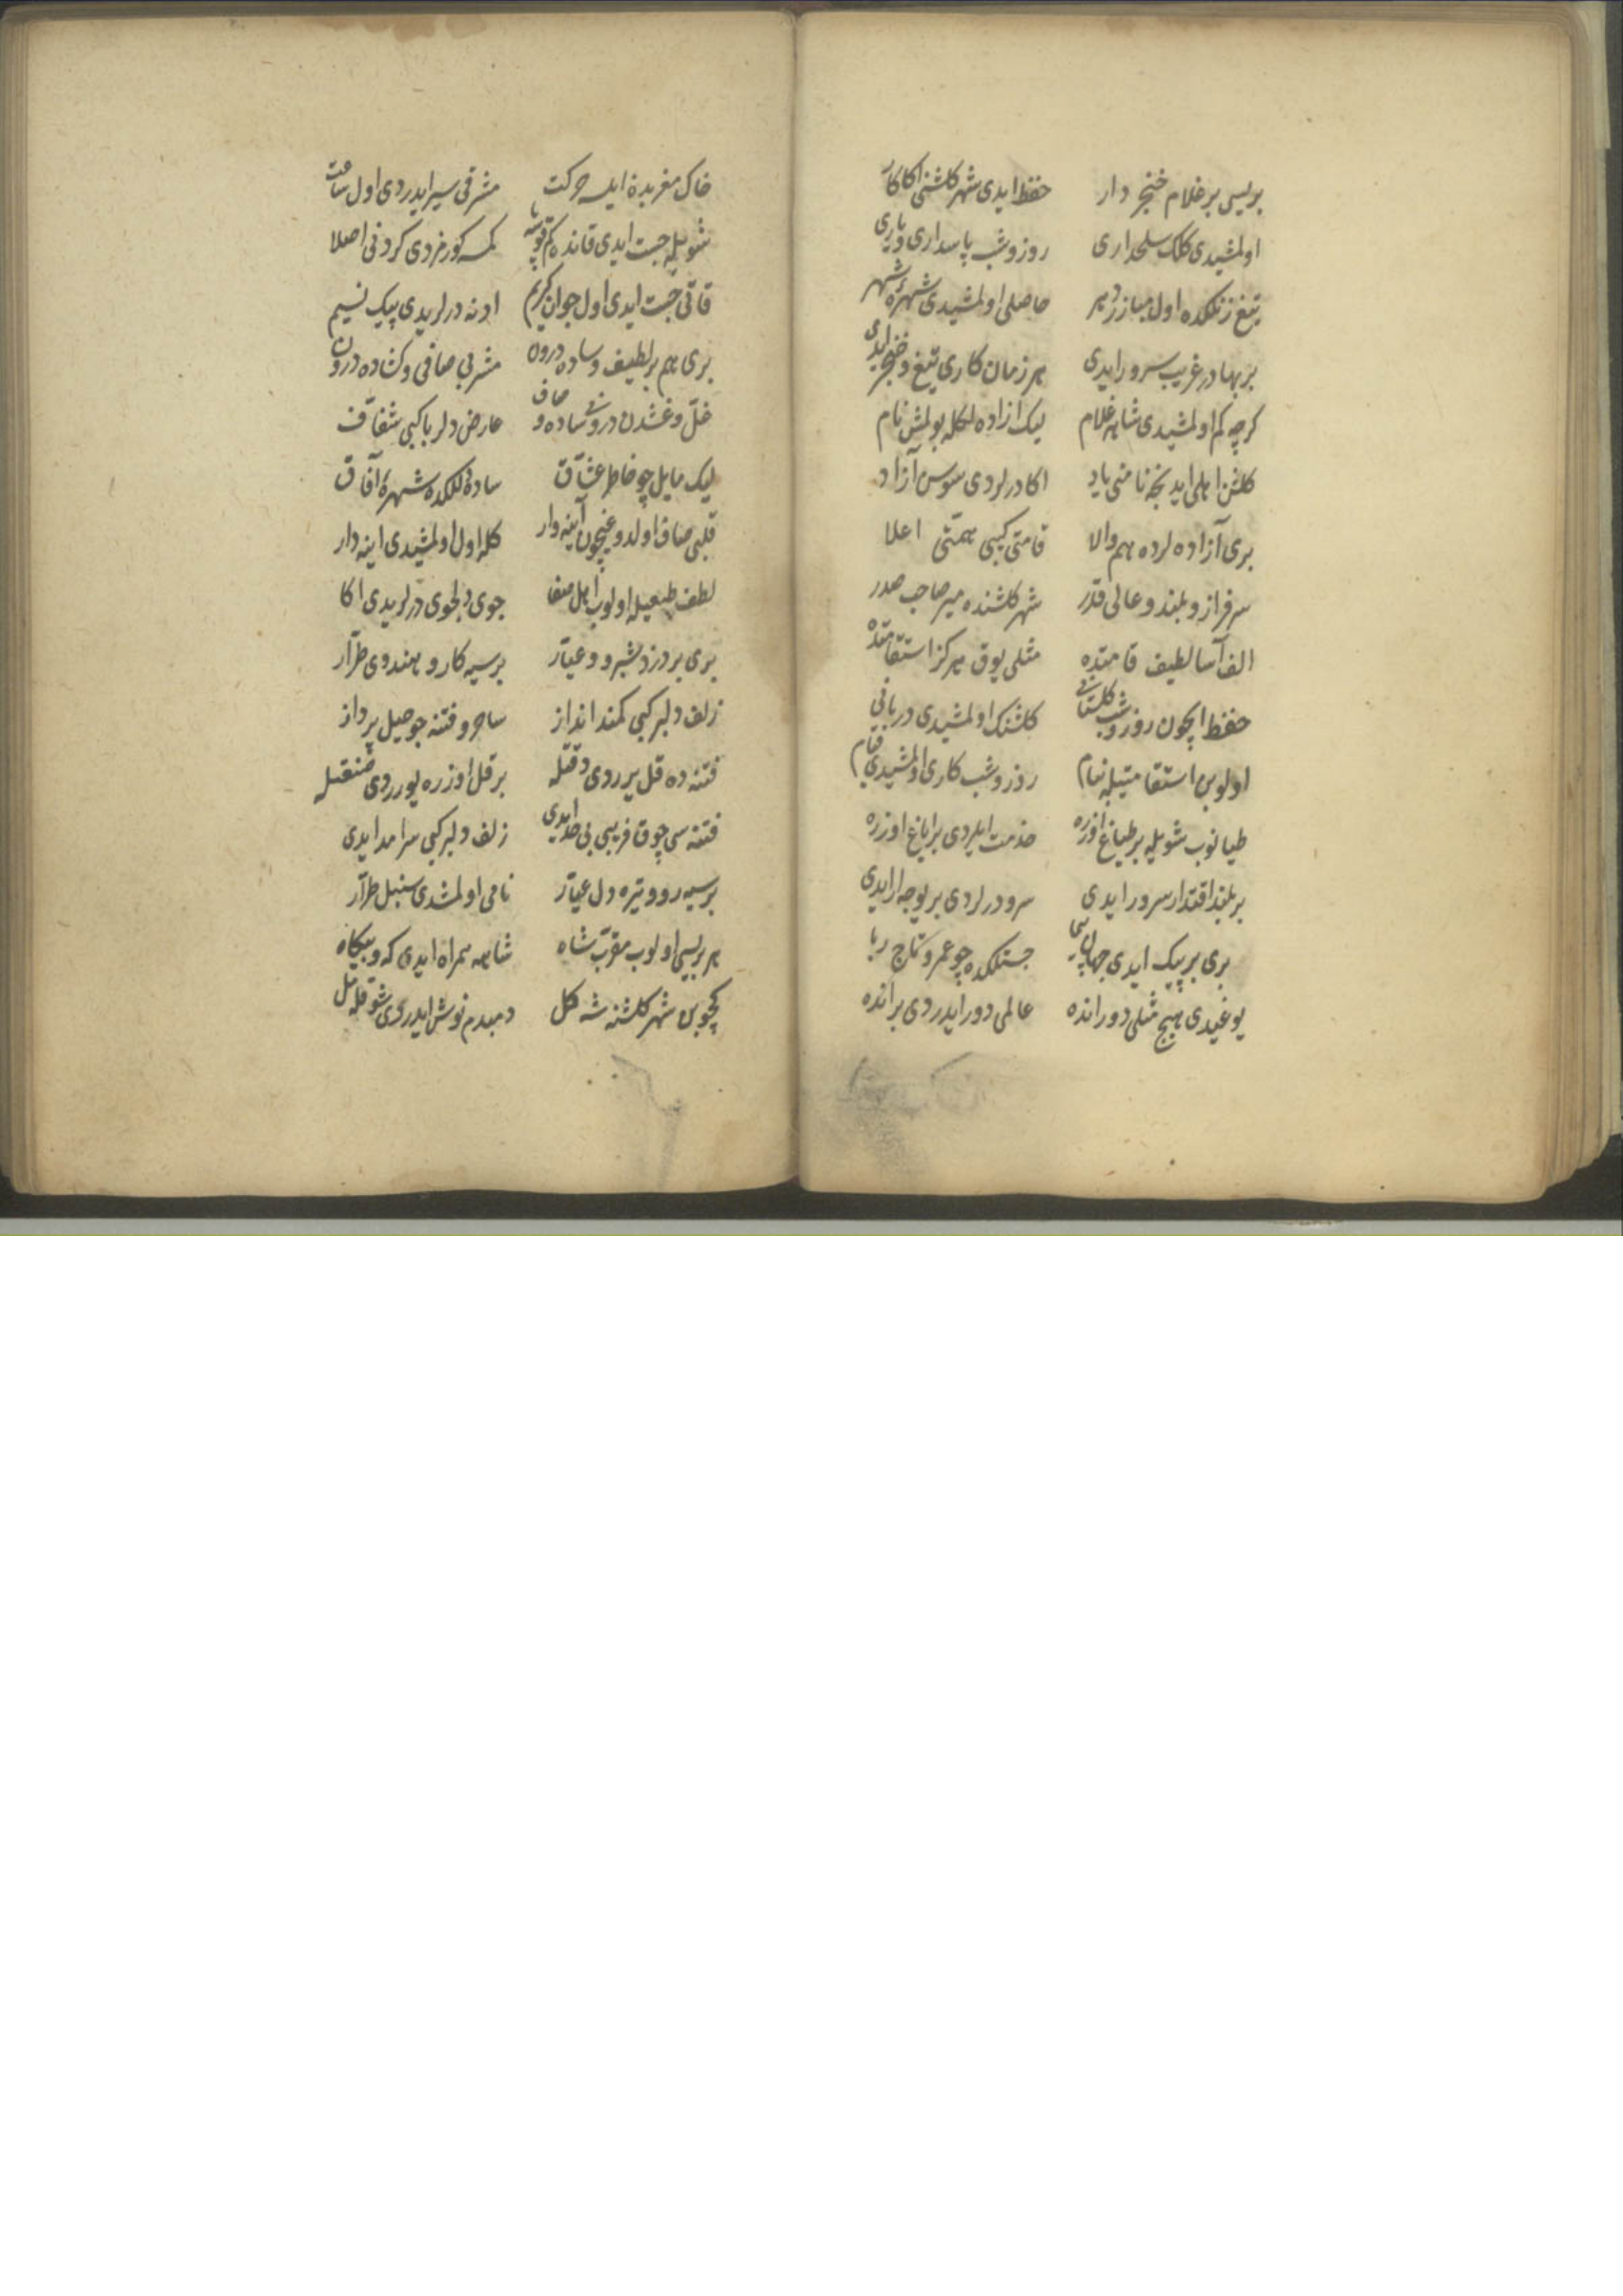 بریسی بر غلام خنجر دار حفظ ایدی شهر کلشنی اکا کار
اولمشیدی کلک سلحداری روز و شب پاسداری و یاری
تیغ زنلکده اول مبارز دهر حاصلی اولمشیدی شهره شهر
بر بهادر غریب سرور ایدی هر زمان کاری تیغ و خنجر ایدی
کرچه کم اولمشیدی شاهه غلام لیک ازاده لکله بولمش نام
کلشن اهلی ایدیجک نامنی یاد اکا درلردی سوسن آزاد
بری آزاده لرده هم والا قامتی کبی همتی اعلا
سرفراز و بلند و عالی قدر شهر کلشنده میر صاحب صدر
الف آسا لطیف قامتده مثلی یوق هرکز استقامتده
حفظ ایچون روز و شب کلستانی کلشنک اولمشیدی دربانی
اولوبن استقامتیله بنام روز و شب کاری اولمشیدی قیام
طیانوب شویله بر طیاغ اوزره خدمت ایلردی بر ایاغ اوزره
بر بلند اقتدار سرور ایدی سرو درلردی بر یوجه ار ایدی
بری بر پیک ایدی جهان پیما جستلکده چو عمرو تاج ربا
یوغیدی هیچ مثلی دورانده عالمی دور ایدردی بر آنده
خاک مغربده ایلسه حرکت مشرقی سیر ایدردی اول ساعت
شویله جست ایدی قانده کم قوپسه یا کمسه کورمزدی کردنی اصلا
قاتی جست ایدی اول جوان کریم ادنه درلریدی پیک نسیم
بری هم بر لطیف و ساده درون مشربی صافی و کشاده درون
غل و غشدن درونی ساده و صاف عارض دلربا کبی شفاف
لیک مایل چو خاطر عشاق ساده لکلکده شهرهٔ آفاق
قلبی صاف اولدوغیچون آینه وار کله اول اولمشیدی اینه دار
لطف طبعیله اولوب اهل صفا جوی دلجوی درلریدی اکا
بری بر دزد شبرو و عیار بر سیه کار و هندوی طرار
زلف دلبر کبی کمند انداز ساحر و فتنه جو حیل پرداز
فتنه ده قل یرردی دقتله بر قل اوزره یوردی صنعتیله
فتنه سی چوق فریبی بی حد ایدی زلف دلبر کبی سرامد ایدی
بر سیه رو و تیره دل عیار نامی اولمشدی سنبل طرار
هر بریسی اولوب مقرب شاه شاهه همراه ایدی که و بیکاه
کچوبن شهر کلشنه شه کل دمبدم نوش ایدردی شوقله مل